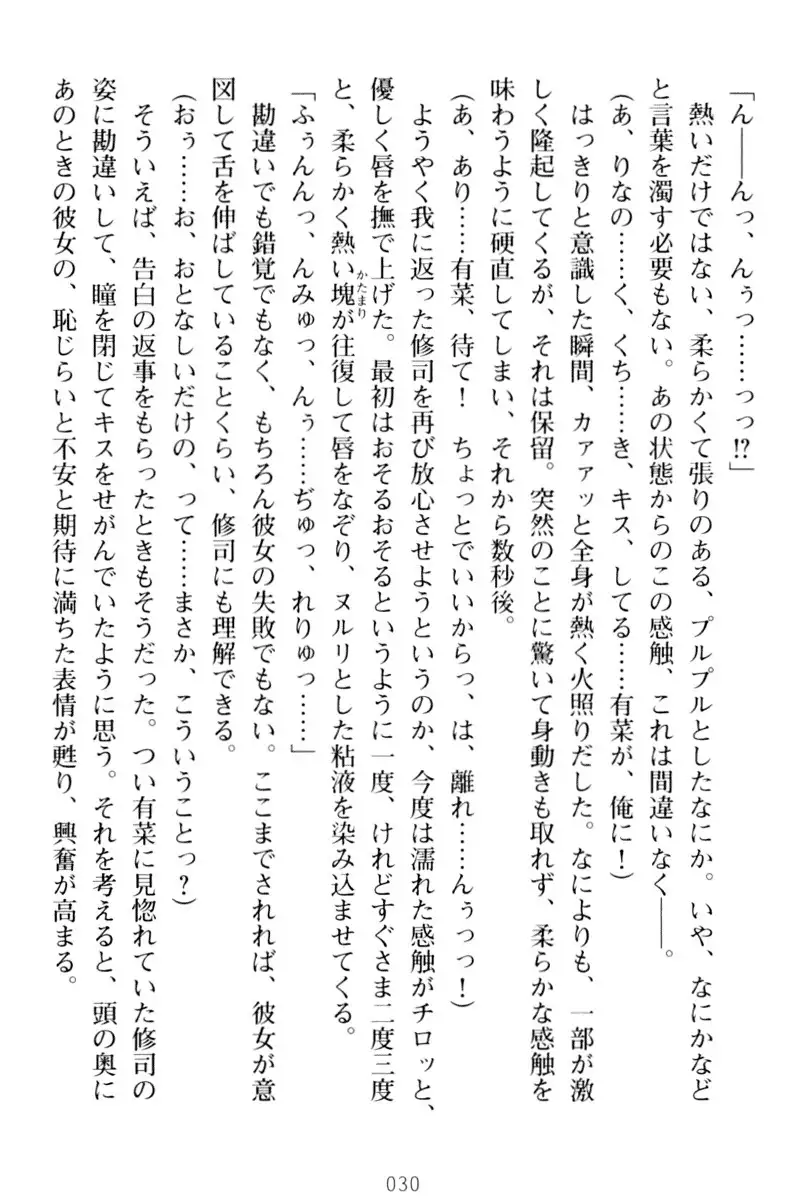 「ん――んっ、んぅっ……っっ!?」
　熱いだけではない、柔らかくて張りのある、プルプルとしたなにか。いや、なにかなど
と言葉を濁す必要もない。あの状態からのこの感触、これは間違いなく――。
（あ、りなの……く、くち……き、キス、してる……有菜が、俺に！）
　はっきりと意識した瞬間、カァァッと全身が熱く火照りだした。なによりも、一部が激
しく隆起してくるが、それは保留。突然のことに驚いて身動きも取れず、柔らかな感触を
味わうように硬直してしまい、それから数秒後。
（あ、あり……有菜、待て！　ちょっとでいいからっ、は、離れ……んぅっっ！）
　ようやく我に返った修司を再び放心させようというのか、今度は濡れた感触がチロッと、
優しく唇を撫で上げた。最初はおそるおそるというように一度、けれどすぐさま二度三度
と、柔らかく熱い塊かたまりが往復して唇をなぞり、ヌルリとした粘液を染み込ませてくる。
「ふぅんんっ、んみゅっ、んぅ……ぢゅっ、れりゅっ……」
　勘違いでも錯覚でもなく、もちろん彼女の失敗でもない。ここまでされれば、彼女が意
図して舌を伸ばしていることくらい、修司にも理解できる。
（おぅ……お、おとなしいだけの、って……まさか、こういうことっ？）
　そういえば、告白の返事をもらったときもそうだった。つい有菜に見惚れていた修司の
姿に勘違いして、瞳を閉じてキスをせがんでいたように思う。それを考えると、頭の奥に
あのときの彼女の、恥じらいと不安と期待に満ちた表情が甦り、興奮が高まる。
030